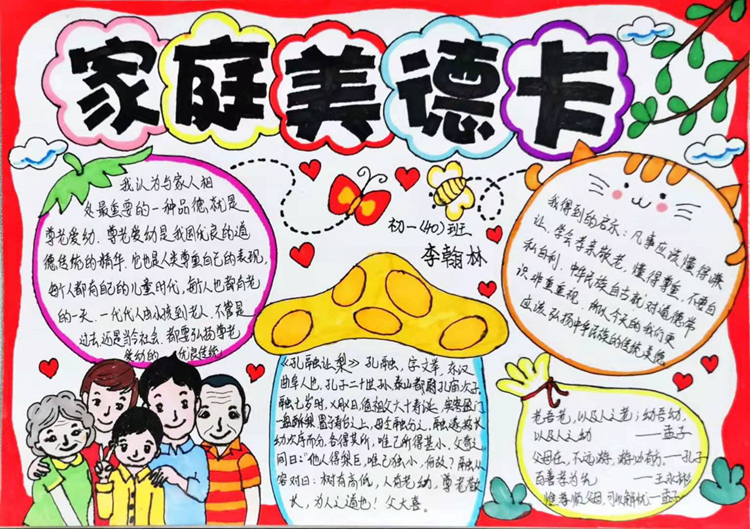 家庭美德卡
我认为与家人相
处最重要的一种品德,就是
尊老爱幼。尊老爱幼是我国优良的道
德传统的精华。它也是人类尊重自己的表现,
每个人都有自己的儿童时代,每个人也都有老
的一天。一代代人由小孩到老人,不管是
过去还是当今社会,都要弘扬尊老
爱幼的 优良传统
初一(40)班
李翰林
我得到的启示:凡事应该懂得谦
让,学会孝亲敬老,懂得尊重,不要自
私自利。中华民族自古就对道德常
识非常重视,所以今天的我们更
应该弘扬中华民族的传统美德
《孔融让梨》孔融,字文举,东汉
曲阜人也,孔子二十世孙,泰山都尉孔宙次子
融七岁时,又叔日,值祖父六十寿诞,宾客盈门
一盘酥梨,置于寿台上,母令融分之。融遂按长
幼次序而分,各得其所,唯己所得甚小。父奇之
问曰:“他人得梨巨,唯己独小,何故?”融从
容对曰:树有高低,人有老幼,尊老敬
长,为人之道也!父大喜。
老吾老,以及人之老;幼吾幼,
以及人之幼 ——孟子
父母在,不远游,游必有方。——孔子
百善孝为先 ——王永彬
惟孝顺父母,可以解忧—孟子